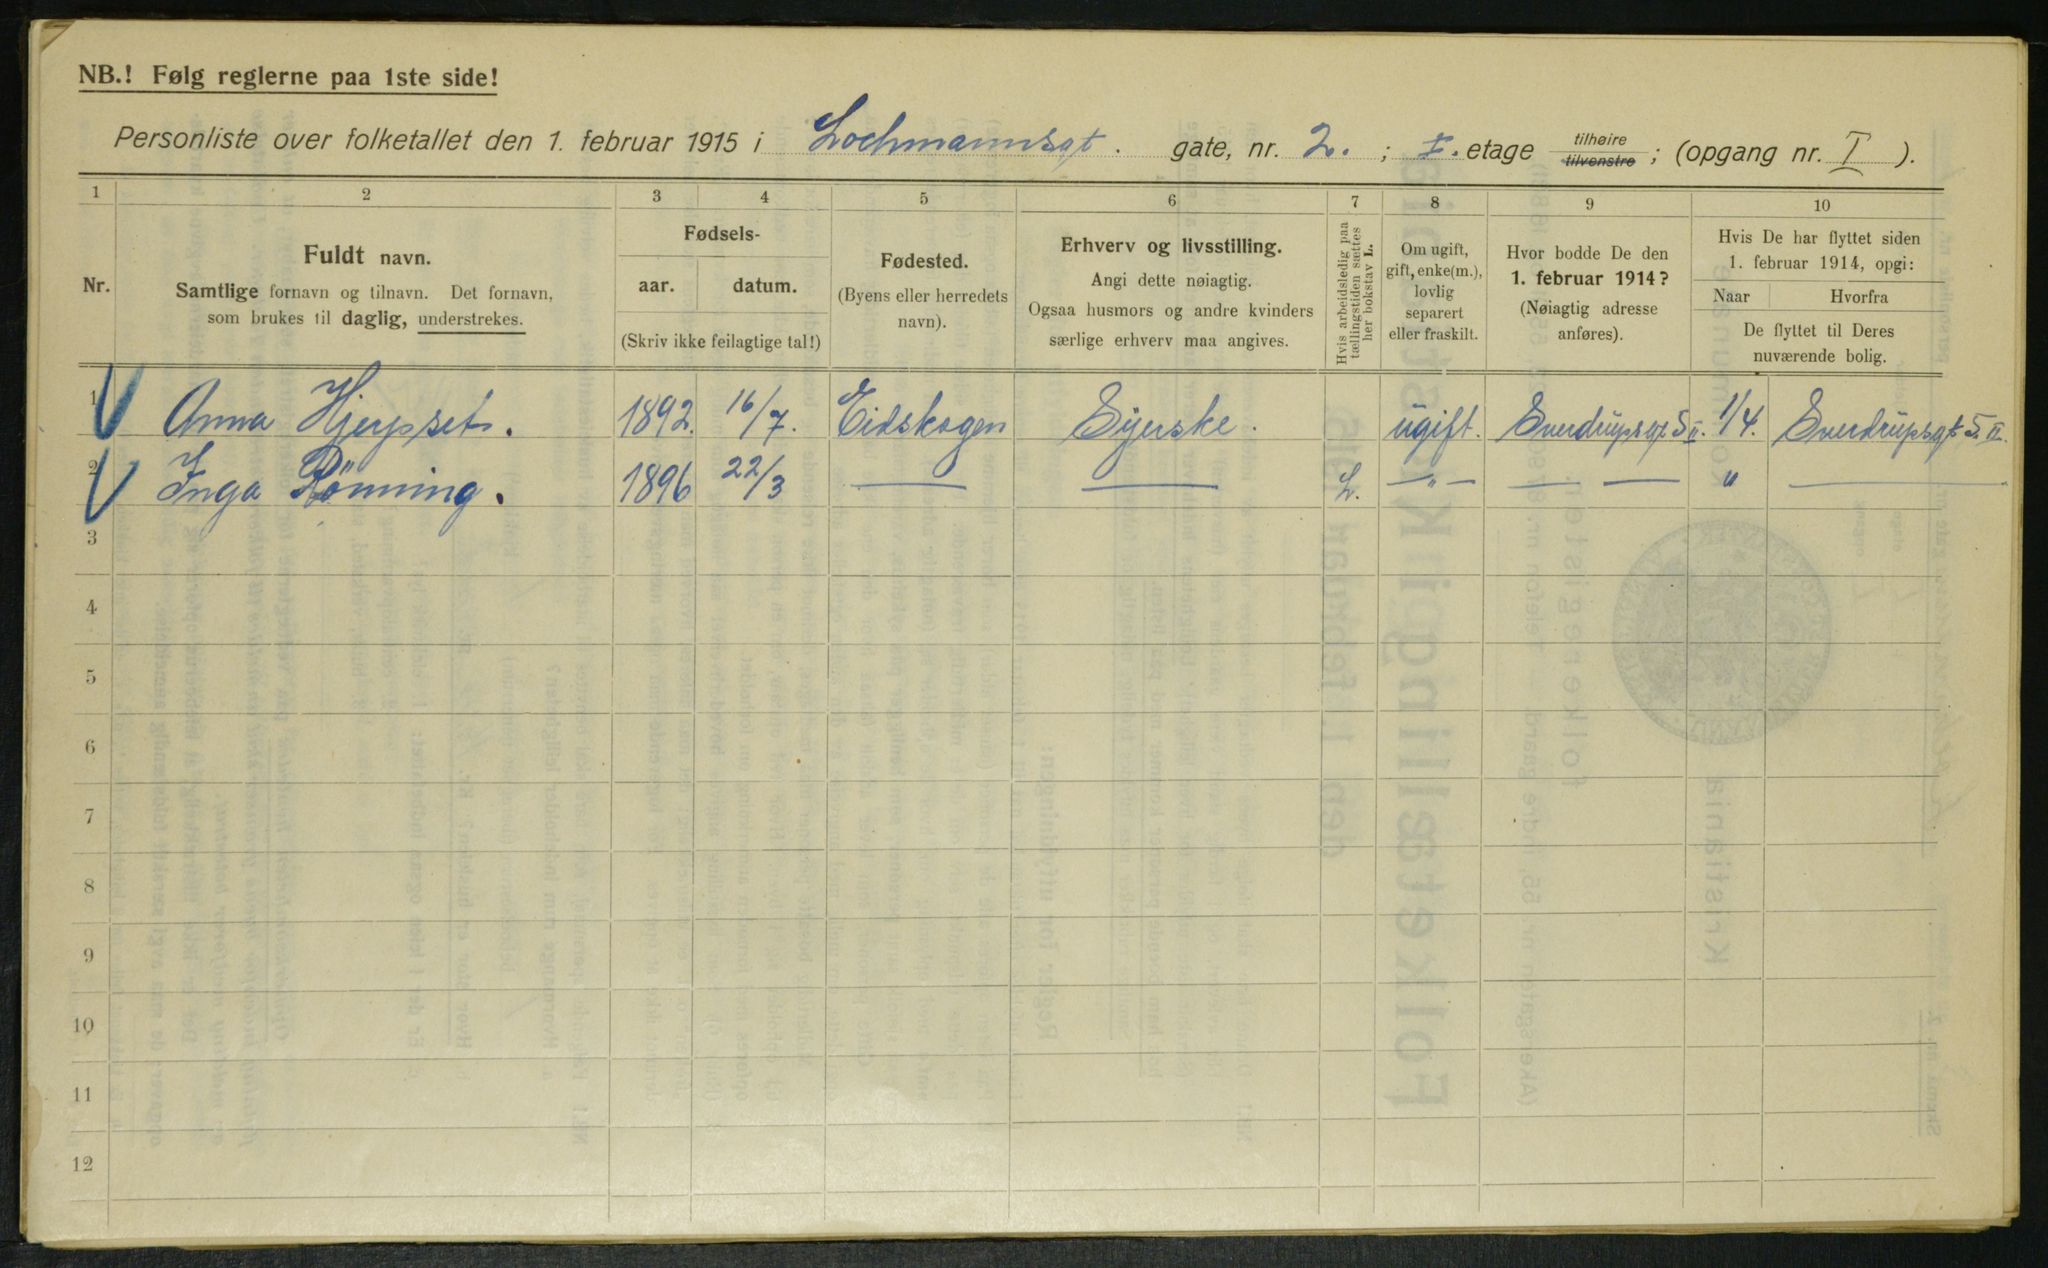 NB.! Følg reglerne paa 1ste side!
Personliste over folketallet den 1. februar 1915 i Lochmannsgt. gate, nr. 2. ; I. etage tilhøire tilvenstre ; (opgang nr. I ).
1 2 3 4 5 6 7 8 9 10
Nr.
Fuldt navn.
Samtlige fornavn og tilnavn. Det fornavn,
som brukes til daglig, understrekes.
Fødsels-
aar. datum.
(Skriv ikke feilagtige tal!)
Fødested.
(Byens eller herredets
navn).
Erhverv og livsstilling.
Angi dette nøiagtig.
Ogsaa husmors og andre kvinders
særlige erhverv maa angives.
Hvis arbeidsledig paa
tællingstiden sættes
her bokstav L.
Om ugift,
gift, enke(m.),
lovlig
separert
eller fraskilt.
Hvor bodde De den
1. februar 1914?
(Nøiagtig adresse
anføres).
Hvis De har flyttet siden
1. februar 1914, opgi:
Naar Hvorfra
De flyttet til Deres
nuværende bolig.
1 Anna Hjerpset. 1892. 16/7. Eidskogen Syerske. ugift. Sverdrupsgt. 5 II. 1/4. Sverdrupsgt. 5. II.
2 Inga Rönning. 1896 22/3 — — L. — " — — — " —
3
4
5
6
7
8
9
10
11
12